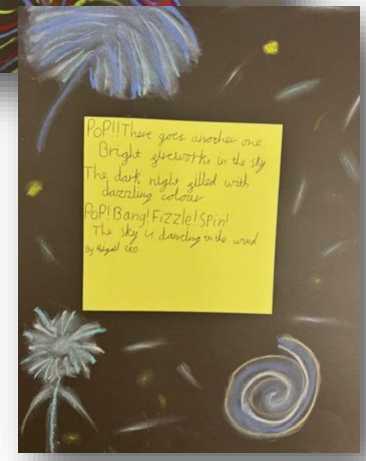 POP!! There goes another one.
Bright fireworks in the sky
The dark night filled with
dazzling colour
POP! Bang! Fizzle! Spin!
The sky is dancing in the wind
By Abigail